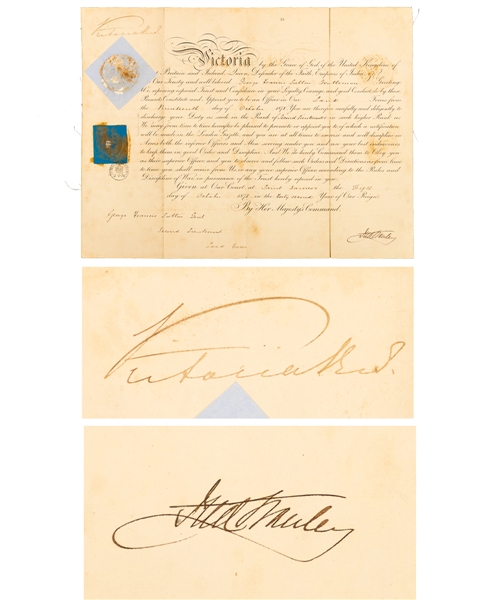 Victoria R.I.
Victoria by the Grace of God of the United Kingdom of
Britain and Ireland, Queen, Defender of the Faith, Empress of India &c.
To Our Trusty and well beloved George Gentleman Greeting
We, reposing especial Trust and Confidence in your Loyalty, Courage, and good Conduct, do by these
Presents Constitute and Appoint you to be an Officer in Our Land Forces from
the day of October 1878. You are therefore carefully and diligently to
discharge your Duty as such in the Rank of Second Lieutenant or in such higher Rank as
We may from time to time hereafter be pleased to promote or appoint you to, of which a notification
will be made in the London Gazette, and you are at all times to exercise and well discipline in
Arms both the inferior Officers and Men serving under you and use your best endeavours
to keep them in good Order and Discipline. And We do hereby Command them to Obey you
as their superior Officer, and you to observe and follow such Orders and Directions as from time
to time you shall receive from Us, or any your superior Officer, according to the Rules and
Discipline of War, in pursuance of the Trust hereby reposed in you.
Given at Our Court at Saint James's the
day of October 1878 in the Forty second Year of Our Reign
By Her Majesty's Command.
George
Second Lieutenant
Land Forces
Fred Stanley
Victoria R.I.
Fred Stanley